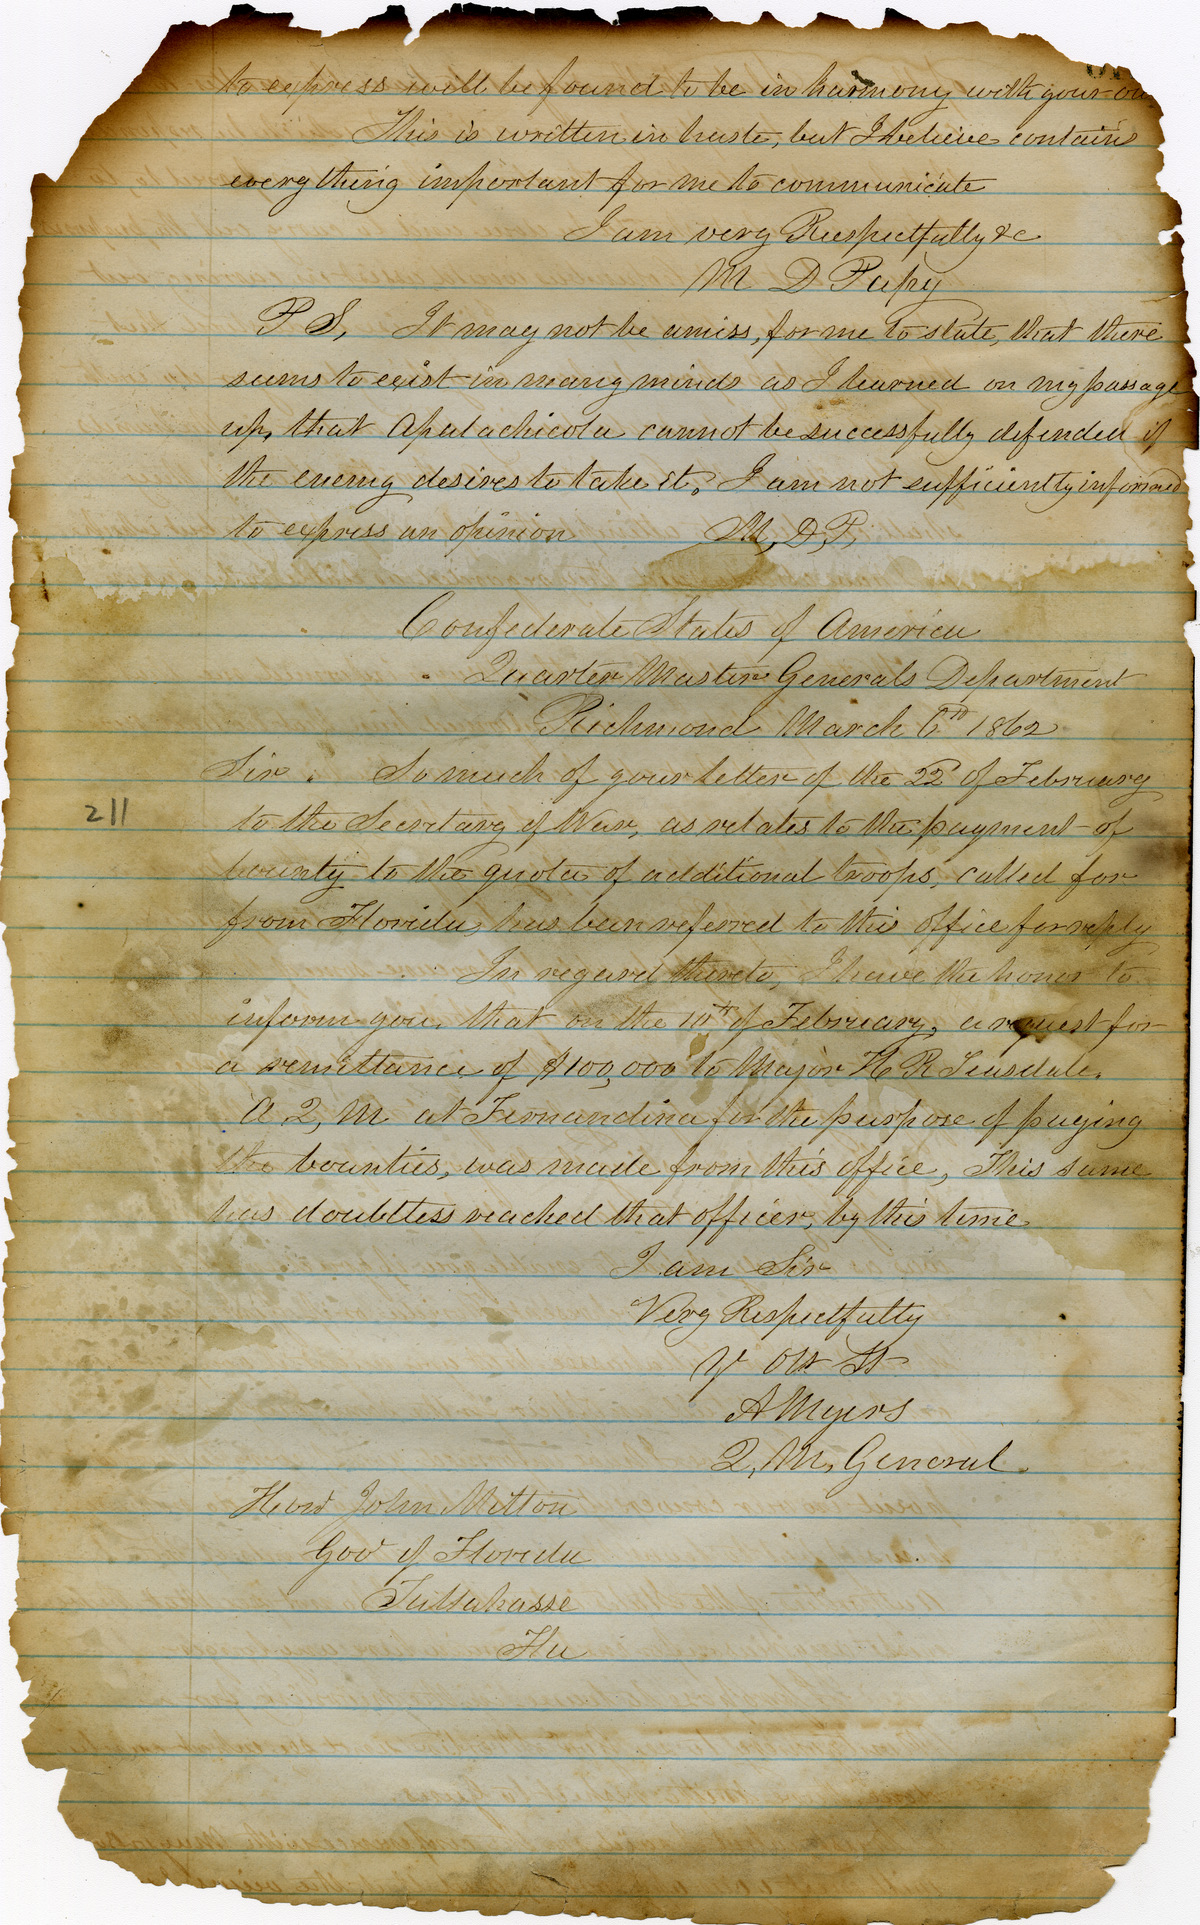 to express will be found to be in harmony with your own
This is written in haste, but I believe contains
everything important for me to communicate
I am very Respectfully &c
M D Papy
P S, It may not be amiss, for me to state, that there
seems to exist in many minds as I learned on my passage
up, that Apalachicola cannot be successfully defended if
the enemy desires to take it, I am not sufficiently informed
to express an opinion M, D, P,
Confederate States of America
Quarter Master Generals Department
Richmond March 6th 1862
Sir. So much of your letter of the 22d of February
to the Secretary of War, as relates to the payment of
211
bounty to the quota of additional troops, called for
from Florida, has been referred to this office for reply
In regard thereto, I have the honor to
inform you, that on the 10th of February, a request for
a remittance of $100,000 to Major H R Teasdale.
A Q, M at Fernandina for the purpose of paying
the bounties, was made from this office, This same
has doubtless reached that officer, by this time
I am Sir
Very Respectfully
Y Obt St
A Myers
Q, M, General.
Hon John Milton
Gov of Florida
Tallahasse
Fla